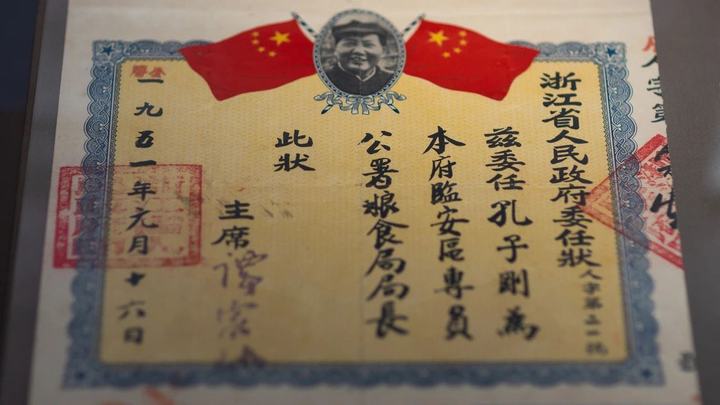 浙江省人民政府委任狀
人字第
兹委任孔子剛為
本府臨安區專員
公署粮食局局長
此狀
主席 譚震林
一九五一年元月十六日